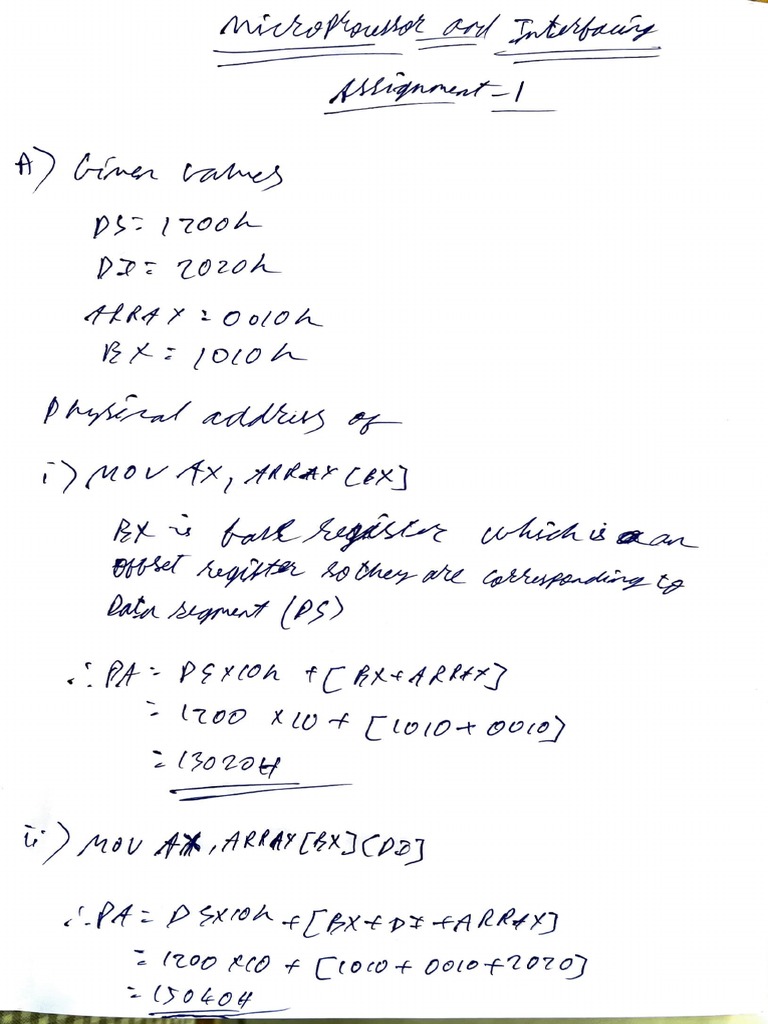 Microprocessor and Interfacing
Assignment-1
A) Given values
DS = 1200h
DI = 2020h
ARRAY = 0010h
BX = 1010h
Physical address of
i) MOV AX, ARRAY [BX]
BX is base register which is an
offset register so they are corresponding to
Data segment (DS)
∴ PA = DS×10h + [BX+ARRAY]
= 1200 ×10 + [1010+0010]
= 13020H
ii) MOV AX, ARRAY[BX][DI]
∴ PA = DS×10h + [BX+DI+ARRAY]
= 1200 ×10 + [1010+0010+2020]
= 15040H